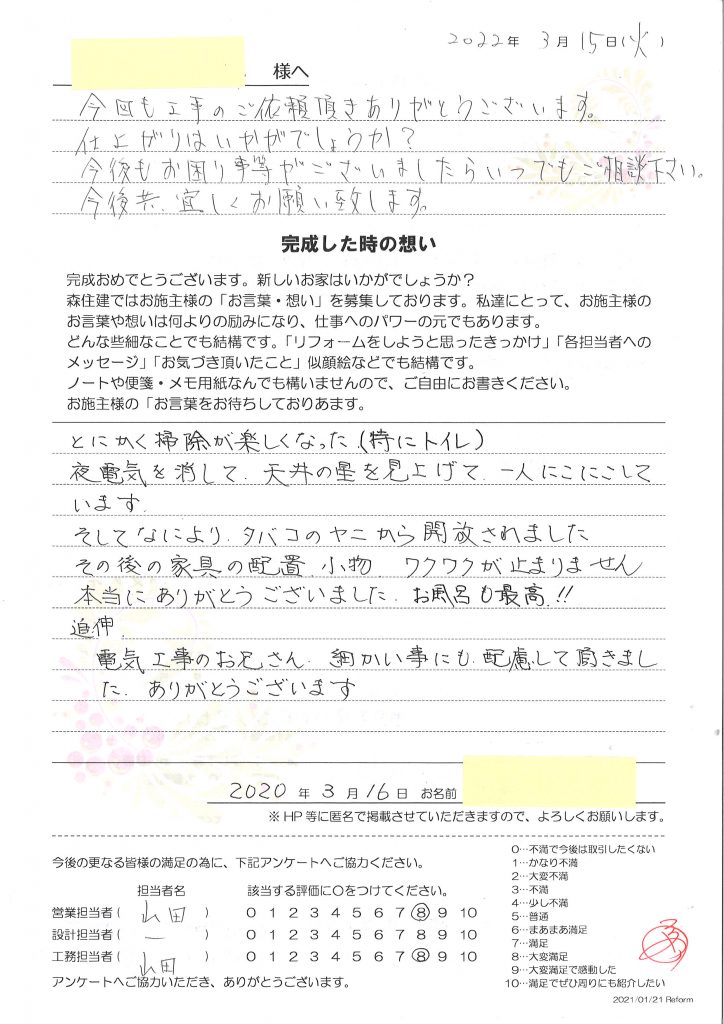 2022年 3月 15日(火)
様へ
今回も工事のご依頼頂きありがとうございます。
仕上がりはいかがでしょうか?
今後もお困り事等がございましたらいつでもご相談下さい。
今後共、宜しくお願い致します。
完成した時の想い
完成おめでとうございます。新しいお家はいかがでしょうか?
森住建ではお施主様の「お言葉・想い」を募集しております。私達にとって、お施主様の
お言葉や想いは何よりの励みになり、仕事へのパワーの元でもあります。
どんな些細なことでも結構です。「リフォームをしようと思ったきっかけ」「各担当者への
メッセージ」「お気づき頂いたこと」似顔絵などでも結構です。
ノートや便箋・メモ用紙なんでも構いませんので、ご自由にお書きください。
お施主様の「お言葉をお待ちしておりあます。
とにかく掃除が楽しくなった(特にトイレ)
夜電気を消して、天井の星を見上げて、一人にこにこして
います.
そしてなにより、タバコのヤニから開放されました
その後の家具の配置、小物、ワクワクが止まりません
本当にありがとうございました. お風呂も最高!!
追伸.
電気工事のお兄さん、細かい事にも配慮して頂きまし
た. ありがとうございます
2020 年 3 月 16 日 お名前
※HP等に匿名で掲載させていただきますので、よろしくお願いします。
今後の更なる皆様の満足の為に、下記アンケートへご協力ください。
担当者名 該当する評価に○をつけてください。
営業担当者( 山田 ) 0 1 2 3 4 5 6 7 8 9 10
設計担当者( ー ) 0 1 2 3 4 5 6 7 8 9 10
工務担当者( 山田 ) 0 1 2 3 4 5 6 7 8 9 10
アンケートへご協力いただき、ありがとうございます。
0…不満で今後は取引したくない
1…かなり不満
2…大変不満
3…不満
4…少し不満
5…普通
6…まあまあ満足
7…満足
8…大変満足
9…大変満足で感動した
10…満足でぜひ周りにも紹介したい
2021/01/21 Reform